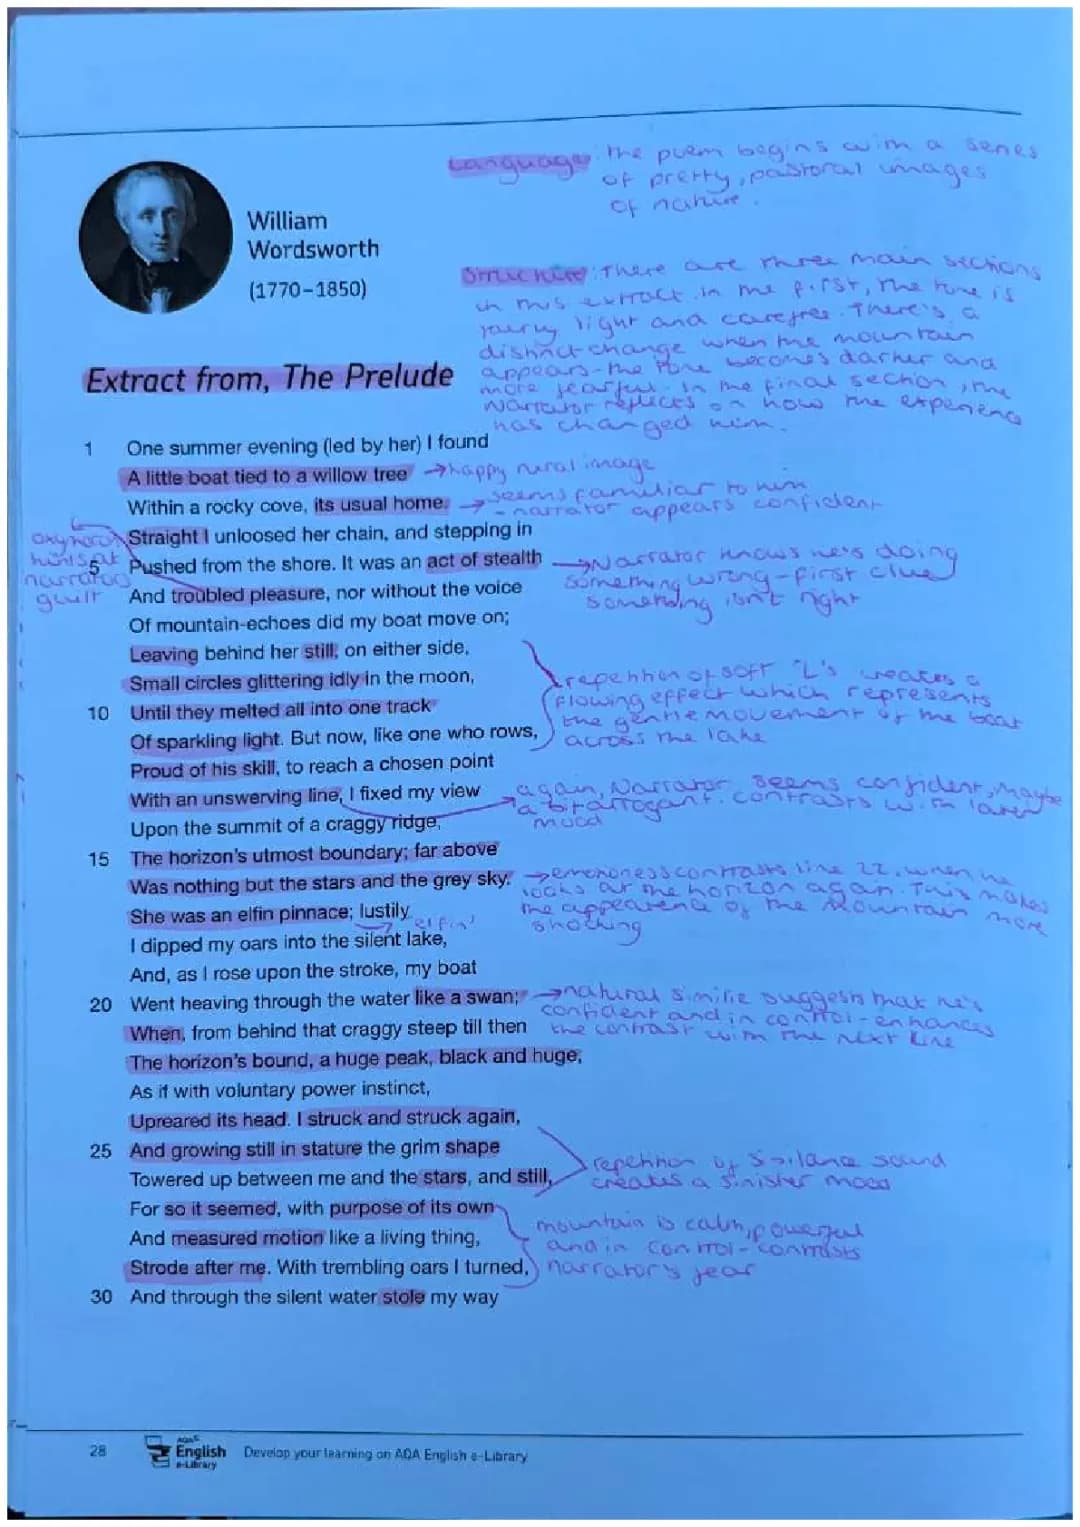 Language: The poem begins with a series
of pretty, pastoral images
of nature.
William
Wordsworth
(1770–1850)
Structure: There are three main sections
in this extract. In the first, the tone is
fairly light and carefree. There's a
distinct change when the mountain
appears - the tone becomes darker and
more fearful. In the final section, the
narrator reflects on how the experience
has changed him.
Extract from, The Prelude
1 One summer evening (led by her) I found
A little boat tied to a willow tree →happy rural image
Within a rocky cove, its usual home. →seems familiar to him
- narrator appears confident
Straight I unloosed her chain, and stepping in
oxymoron
hints at
narrators
guilt
5 Pushed from the shore. It was an act of stealth →Narrator knows he's doing
something wrong - first clue
something isn't right
And troubled pleasure, nor without the voice
Of mountain-echoes did my boat move on;
Leaving behind her still, on either side,
Small circles glittering idly in the moon,
10 Until they melted all into one track
Of sparkling light. But now, like one who rows,
repetition of soft 'L's creates a
flowing effect which represents
the gentle movement of the boat
across the lake
Proud of his skill, to reach a chosen point
With an unswerving line, I fixed my view
again, Narrator seems confident, maybe
a bit arrogant. contrasts with later
mood
Upon the summit of a craggy ridge,
15 The horizon's utmost boundary; far above
Was nothing but the stars and the grey sky. →emptiness contrasts line 22, when he
looks at the horizon again. This makes
the appearence of the mountain more
shocking
She was an elfin pinnace; lustily
elfin'
I dipped my oars into the silent lake,
And, as I rose upon the stroke, my boat
20 Went heaving through the water like a swan; →natural similie suggests that he's
confident and in control - enhances
the contrast with the next line
When, from behind that craggy steep till then
The horizon's bound, a huge peak, black and huge,
As if with voluntary power instinct,
Upreared its head. I struck and struck again,
25 And growing still in stature the grim shape
Towered up between me and the stars, and still,
repetition of sound
creates a sinister mood
For so it seemed, with purpose of its own
And measured motion like a living thing,
Strode after me. With trembling oars I turned,
mountain is calm, powerful
and in control - contrasts
narrator's fear
30 And through the silent water stole my way
28
AQA
English
e-Library
Develop your learning on AQA English e-Library